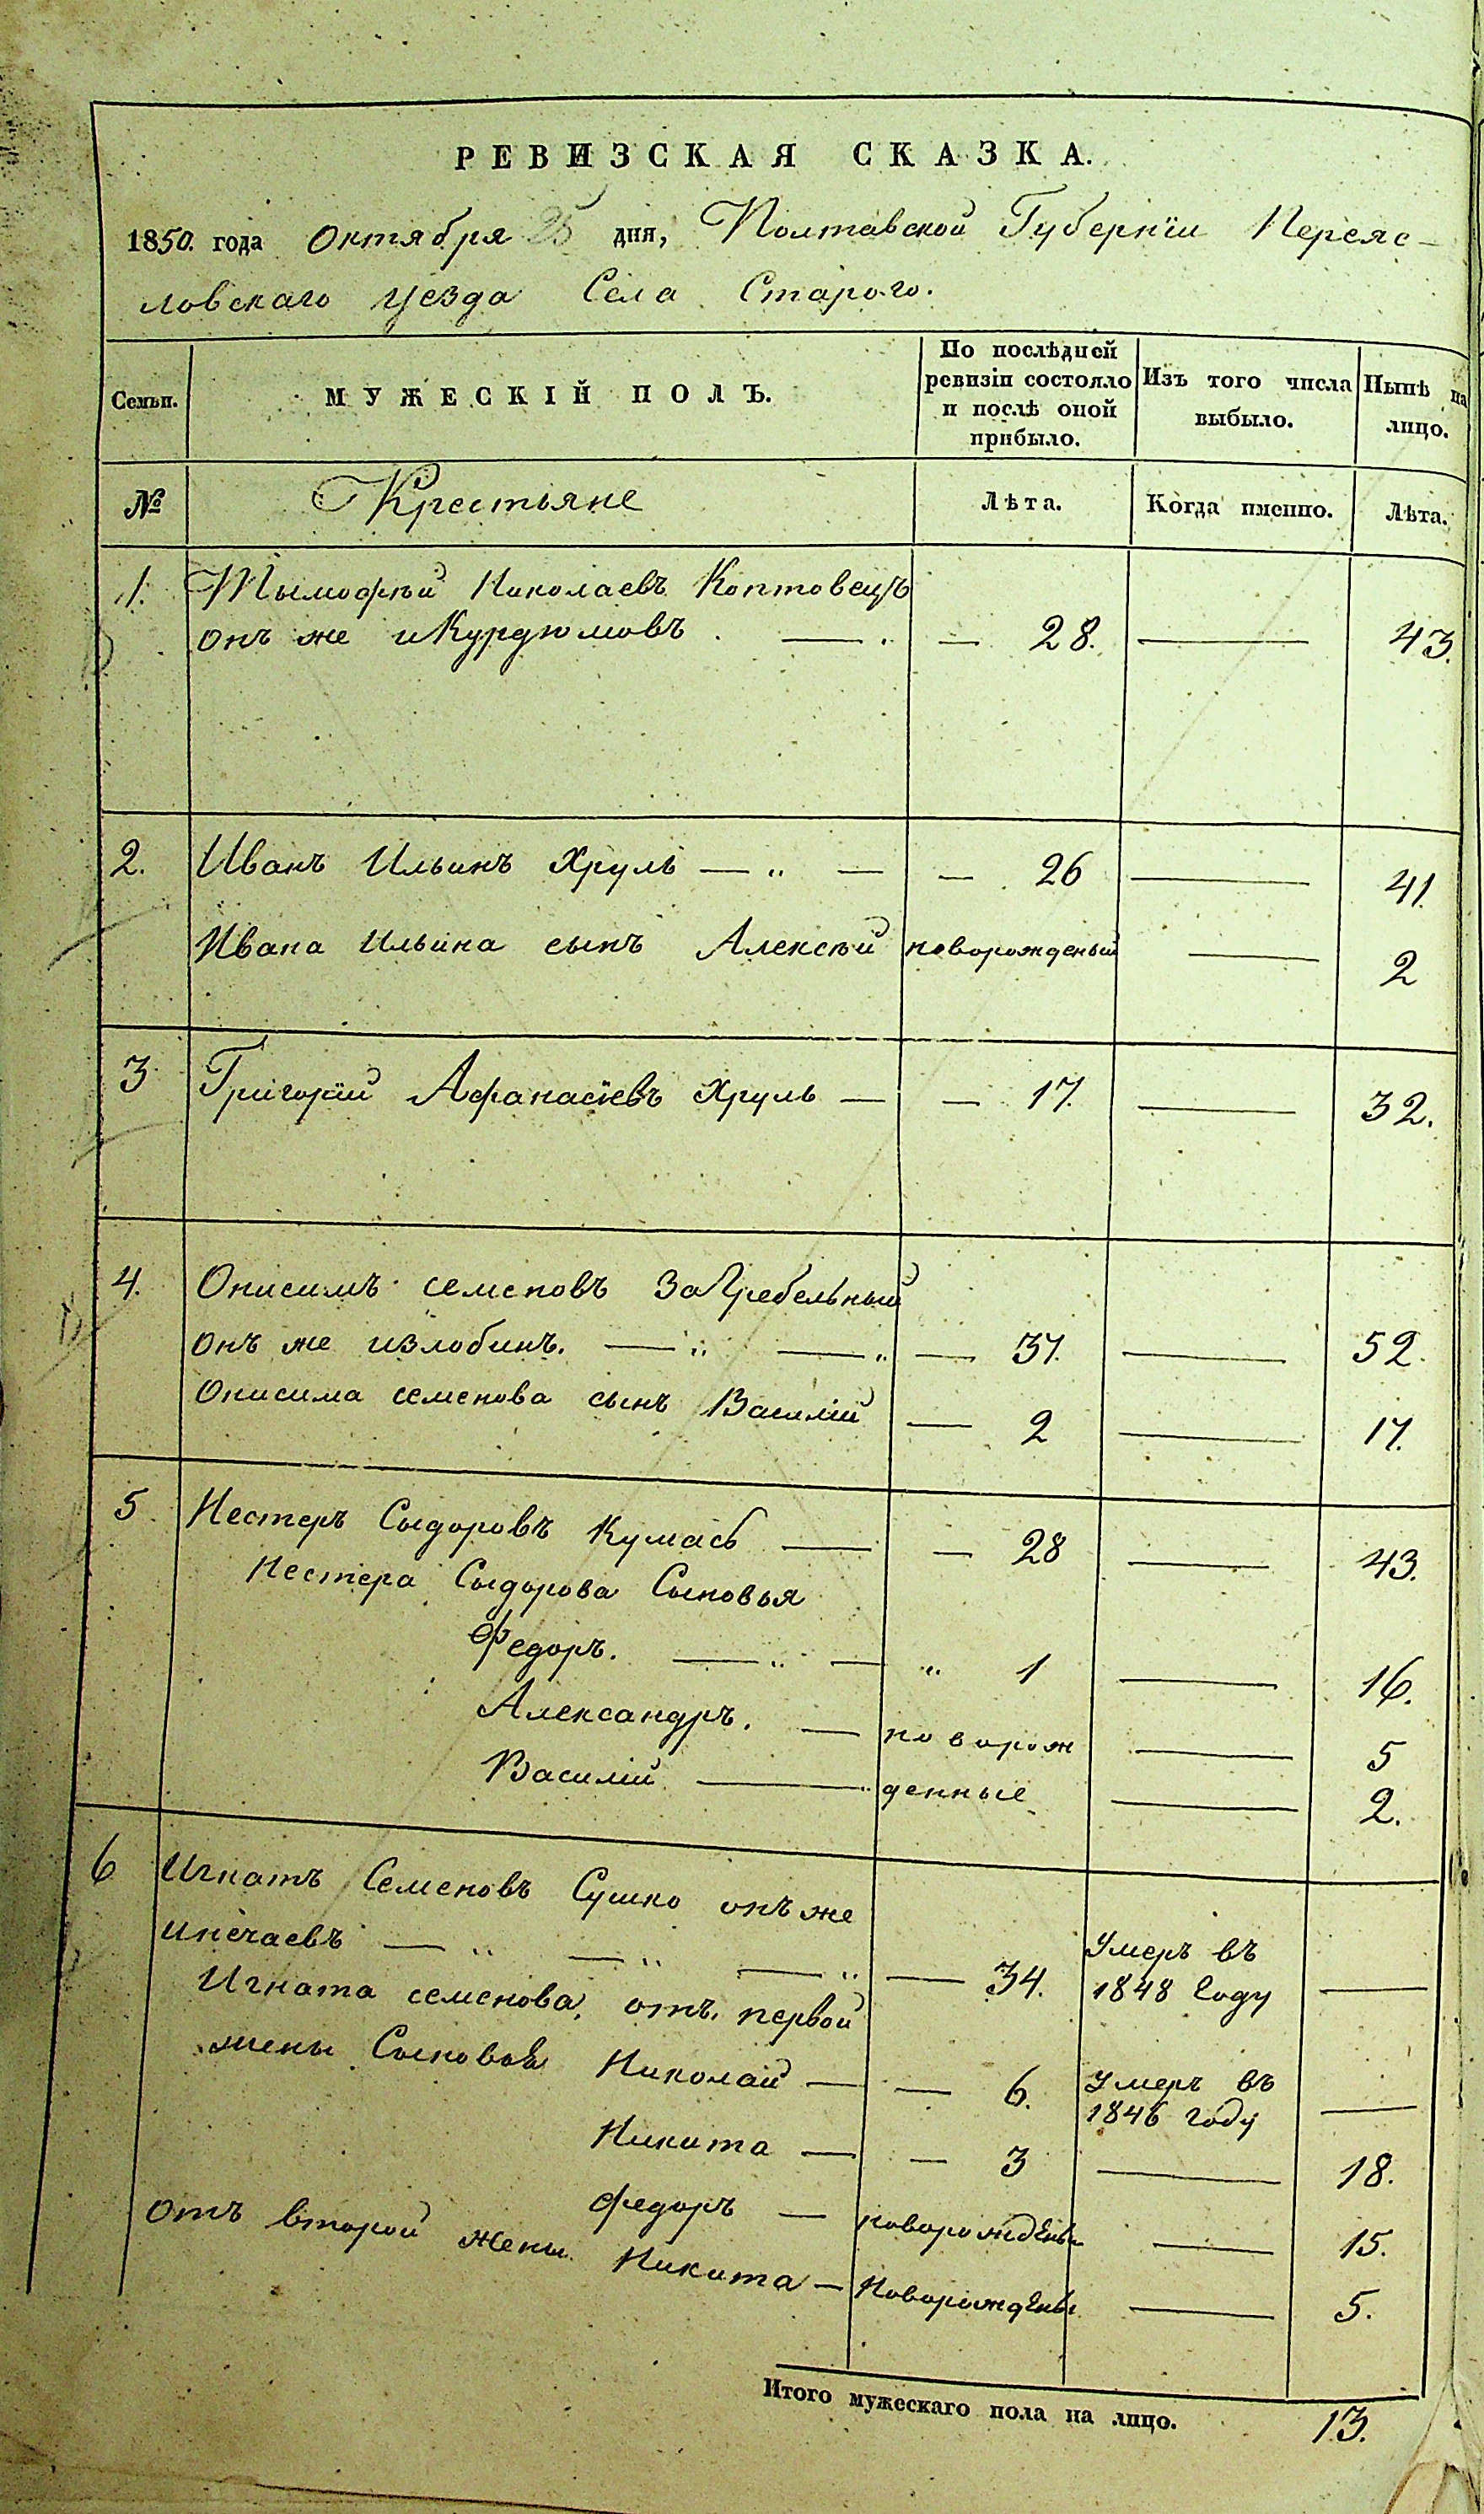 РЕВИЗСКАЯ СКАЗКА.
1850. года Октября 25 дня, Полтавской Губерніи Переяс-
ловскаго уезда Села Старого.
Семьи. МУЖЕСКІЙ ПОЛЪ. По послѣдней ревизіи состояло и послѣ оной прибыло. Изъ того числа выбыло. Нынѣ на лицо.
№ Крестьяне Лѣта. Когда именно. Лѣта.
1. Тымофѣй Николаевъ Коптовецъ
онъ же и Курдюмовъ. — 28. — 43.
2. Иванъ Ильинъ Хруль — 26 — 41
Ивана Ильина сынъ Алексѣй новорожденый — 2
3 Григорій Афанасіевъ Хруль — 17. — 32.
4. Онисимъ Семеновъ Загребельный
онъ же и Злобинъ. — 37. — 52.
Онисима Семенова сынъ Василій — 2 — 17.
5 Нестеръ Сыдоровъ — 28 — 43.
Нестера Сыдорова Сыновья
Федоръ. — „ 1 — 16.
Александръ. — новорож — 5
Василій — денные — 2.
6 Игнатъ Семеновъ Сушко онъ же
и Нечаевъ — 34. Умеръ въ 1848 году —
Игната Семенова, отъ первой
жены Сыновья Николай — 6. Умеръ въ 1846 году —
Никита — 3 — 18.
Федоръ — новорожденъ — 15.
Отъ второй жены Никита — Новорожденъ — 5.
Итого мужескаго пола на лицо. 13.